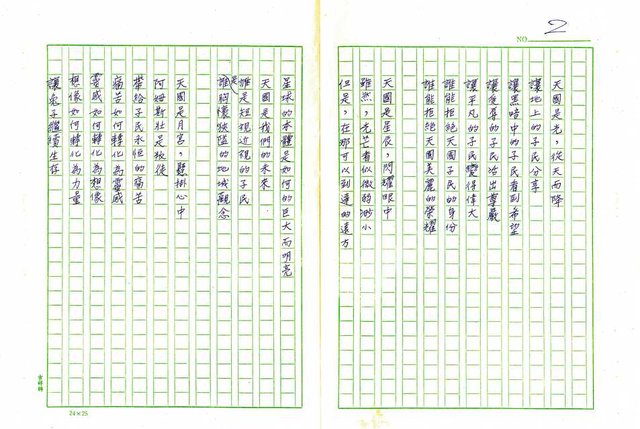 NO. 2
天國是光，從天而降
讓地上的子民分享
讓黑暗中的子民看到希望
讓復尊的子民活出尊嚴
讓平凡的子民變得偉大
誰能拒絕天國子民的身份
誰能拒絕天國美麗的榮耀
天國是星辰，閃耀眼中
雖然，光芒看似微弱渺小
但是，在那可以到達的遠方
星球的本體是如何的巨大而明亮
天國是我們的未來．
誰是短視近視的子民
誰是胸懷狹隘的地域觀念
天國是月宮，懸掛心中
阿姆斯壯是敗後
帶給子民永恒的痛苦
痛苦如何轉化為靈感
靈感如何轉化為想像
想像如何轉化為力量
讓兔子繼續生存
24×25